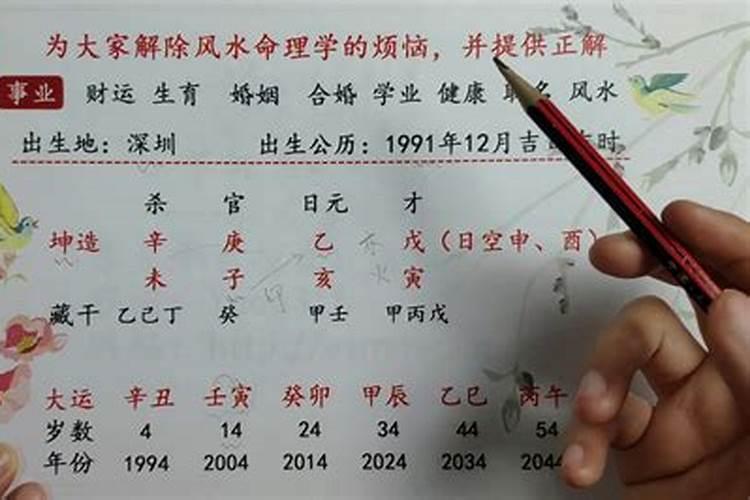 为大家解除风水命理学的烦恼，并提供正解
事业 财运 生育 婚姻 合婚 学业 健康 取名 风水
出生地：深圳 出生公历：1991年12月吉 时
杀 官 日元 才
坤造 辛 庚 乙 戊（日空申、酉）
未 子 亥 寅
藏干 乙己丁 癸 甲壬 甲丙戊
大运 辛丑 壬寅 癸卯 甲辰 乙巳 丙午
岁数 4 14 24 34 44 54
年份 1994 2004 2014 2024 2034 2044